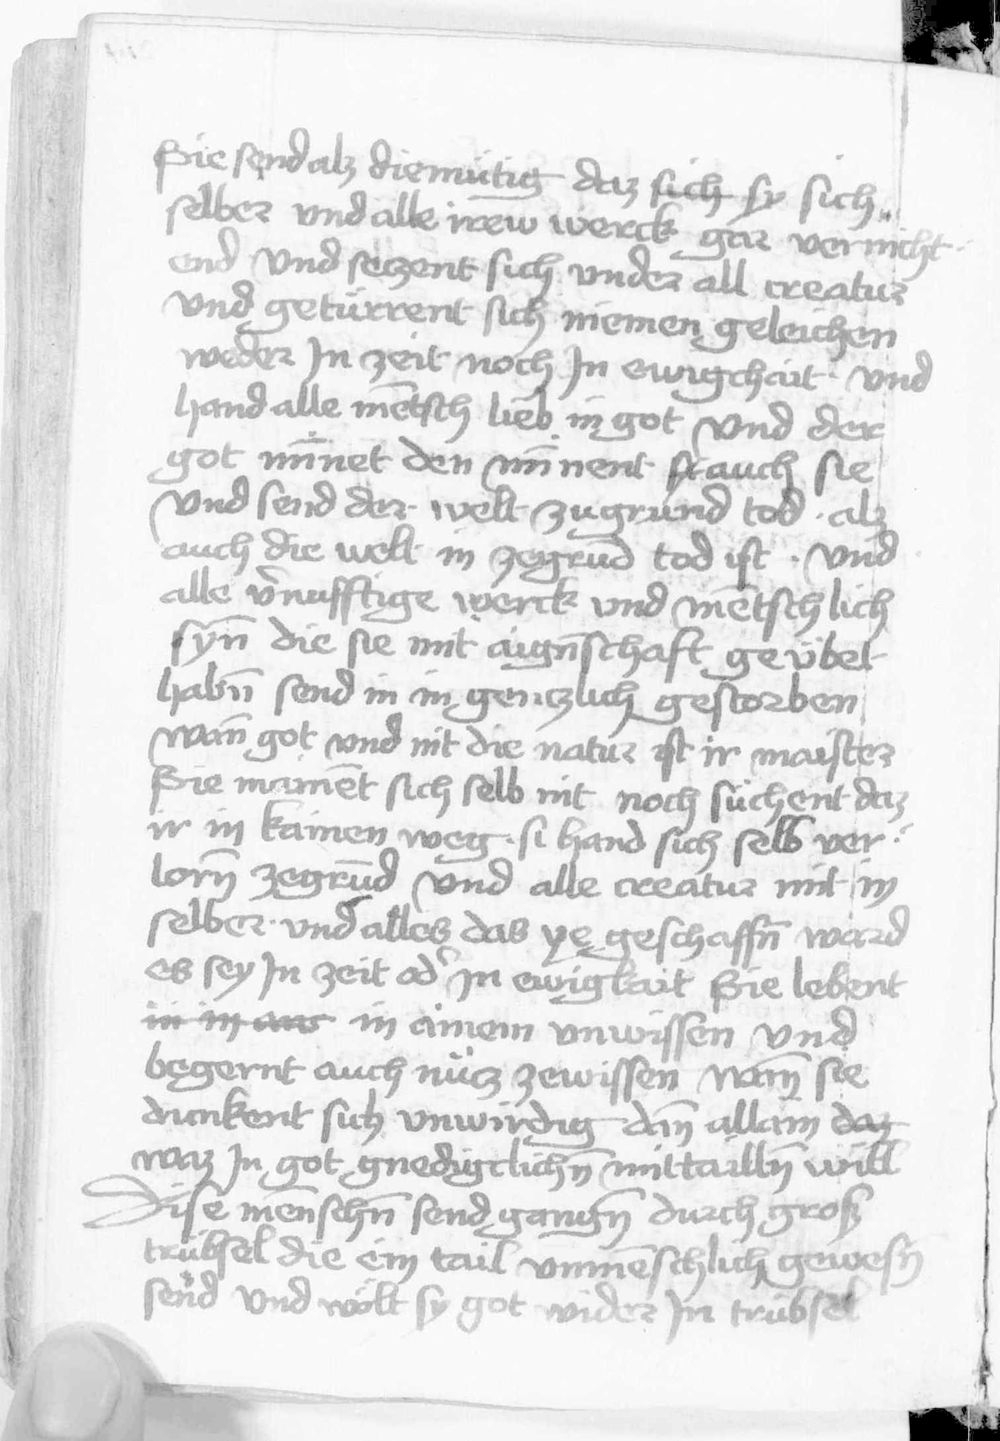 Sie send alz diemütig daz sich sy sich
selber vnd alle irew werck gar vernicht
end vnd seczent sich vnder all creatur
vnd getürrent sich niemen geleichen
weder In zeit noch In ewigchait · vnd
hand alle mētsch lieb in got vnd der
got mīnet den mīnent si auch sie
vnd send der welt zugrund tod · alz
auch die welt in zegrūd tod ist · vnd
alle v̄nufftige werck vnd mētschlich
syn̄ die sie mit aign̄schaft geübet
habn̄ send in in genczlich gestorben
wan̄ got vnd nit die natur ist ir maister
Sie mainēt sich selb nit noch süchent daz
ir in kainen weg · si hand sich selb ver
lorn̄ zegrūd vnd alle creatur mit in
selber · vnd alles das ye geschaffn̄ ward
es sey In zeit od̛ In ewigkait Sie lebent
in in in ainem vnwissen vnd
begernt auch nücz zewissen wan̄ sie
dunkent sich vnwirdig dan̄ allain daz
waz In got gnedigclichn̄ mittailln̄ will
Dise mēnschn̄ send gangn̄ durch groß
trübsel die ein tail vnmēschlich gewesn̄
send vnd wölt sy got wider In trübsel